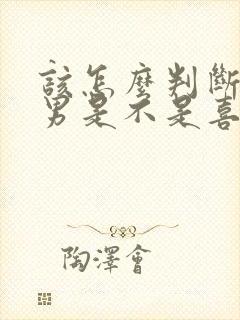 該怎麼判斷
男是不是喜
陶澤會